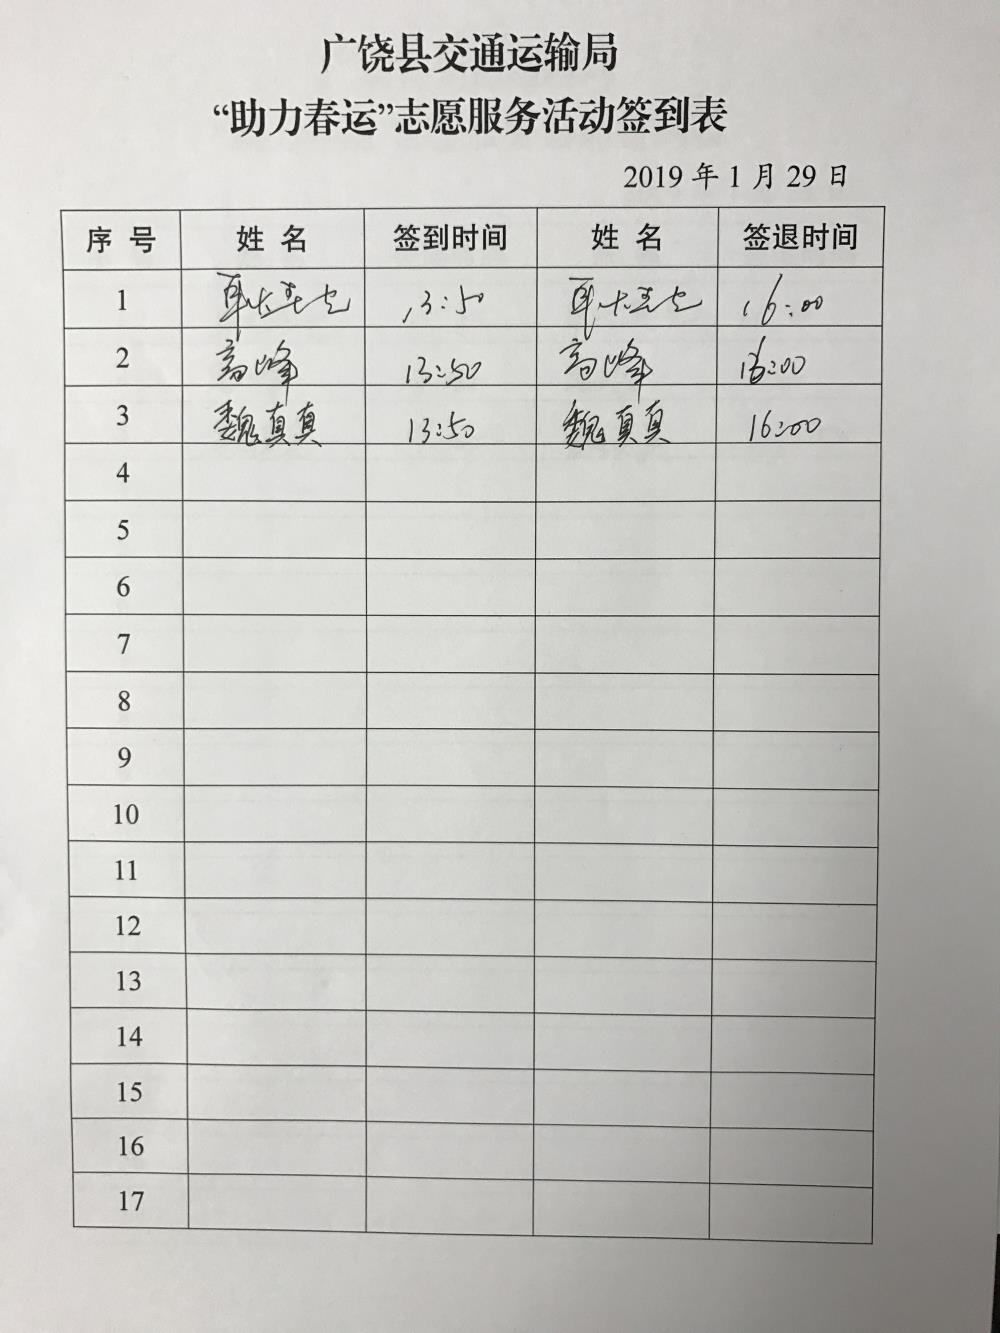 广饶县交通运输局
“助力春运”志愿服务活动签到表
2019 年 1 月 29 日
序 号 姓 名 签到时间 姓 名 签退时间
1 13:50 16:00
2 高峰 13:50 高峰 16:00
3 魏真真 13:50 魏真真 16:00
4
5
6
7
8
9
10
11
12
13
14
15
16
17